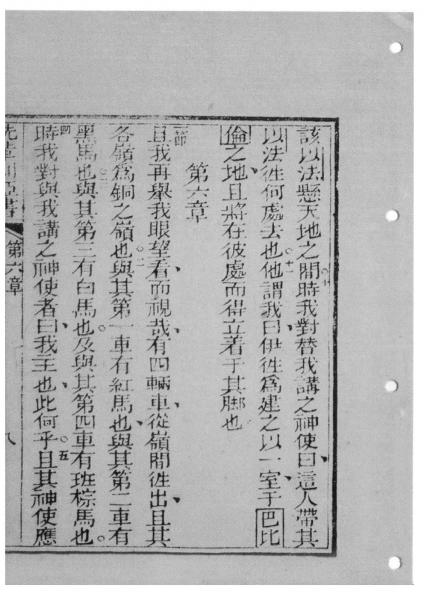 該以法懸天地之間時我對替我講之神使曰這人帶其
以法徃何處去也他謂我曰伊徃爲建之以一室于巴比
倫之地且將在彼處而得立着于其脚也
第六章
一節且我再舉我眼望看而視哉有四輛車從嶺間徃出且其
各嶺爲銅之嶺也二與其第一車有紅馬也與其第二車有
黑馬也三與其第三有白馬也及與其第四車有班棕馬也
四時我對與我講之神使者曰我主也此何乎五且其神使應
第六章
八